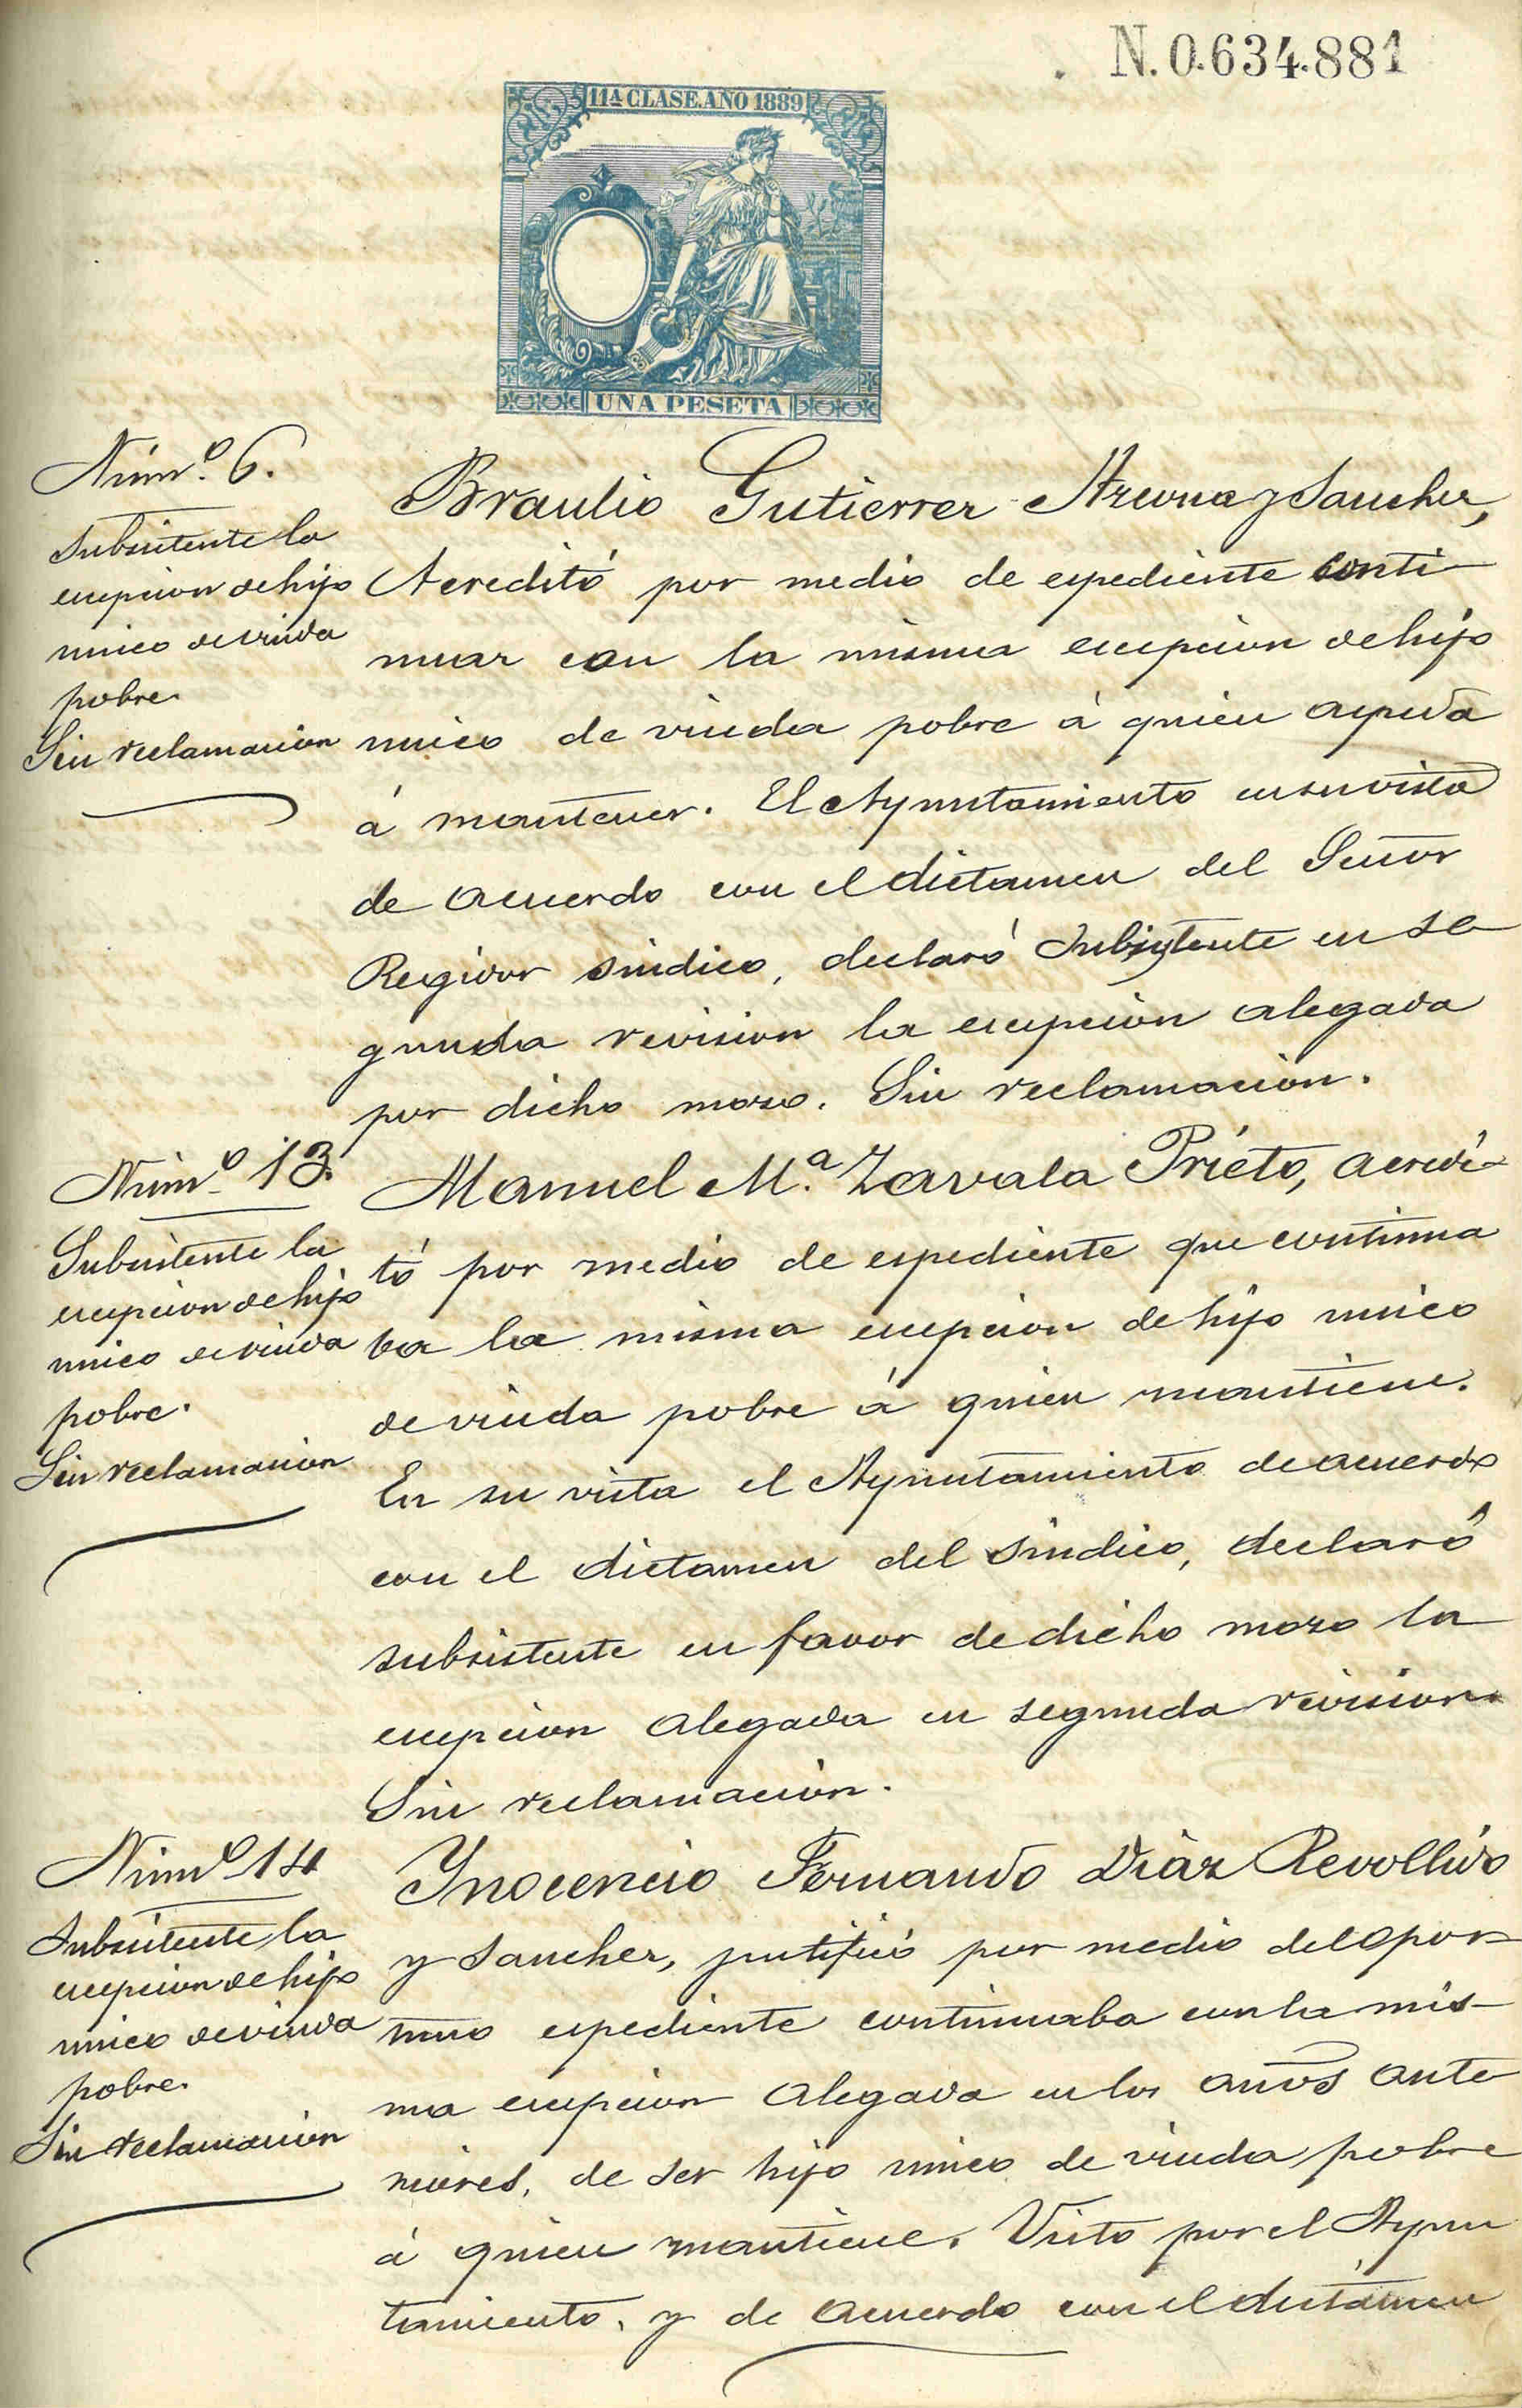 N. 0.634.881
11ª CLASE. AÑO 1889
UNA PESETA
Núm.º 6.
Subsistente la
escepcion de hijo
unico de viuda
pobre.
Sin reclamacion
Braulio Gutierrez y Sanchez,
Acreditó por medio de espediente conti-
nuar con la misma escepcion de hijo
unico de viuda pobre á quien ayuda
á mantener. El Ayuntamiento en su vista
de acuerdo con el dictamen del Señor
Regidor sindico, declaró Subsistente en se
gunda revision la escepcion alegada
por dicho mozo. Sin reclamacion.
Núm.º 13.
Subsistente la
escepcion de hijo
unico de viuda
pobre.
Sin reclamacion
Manuel M.ª Zavala Prieto, acredi-
tó por medio de espediente que continua
ba la misma escepcion de hijo unico
de viuda pobre á quien mantiene.
En su vista el Ayuntamiento de acuerdo
con el dictamen del sindico, declaró
subsistente en favor de dicho mozo la
escepcion alegada en segunda revision.
Sin reclamacion.
Núm.º 14
Subsistente la
escepcion de hijo
unico de viuda
pobre.
Sin reclamacion
Ynocencio Fernando Diaz Revollido
y Sanchez, justificó por medio del opor-
tuno espediente continuaba con la mis-
ma escepcion alegada en los años ante
riores, de ser hijo unico de viuda pobre
á quien mantiene. Visto por el Ayun
tamiento, y de acuerdo con el dictámen